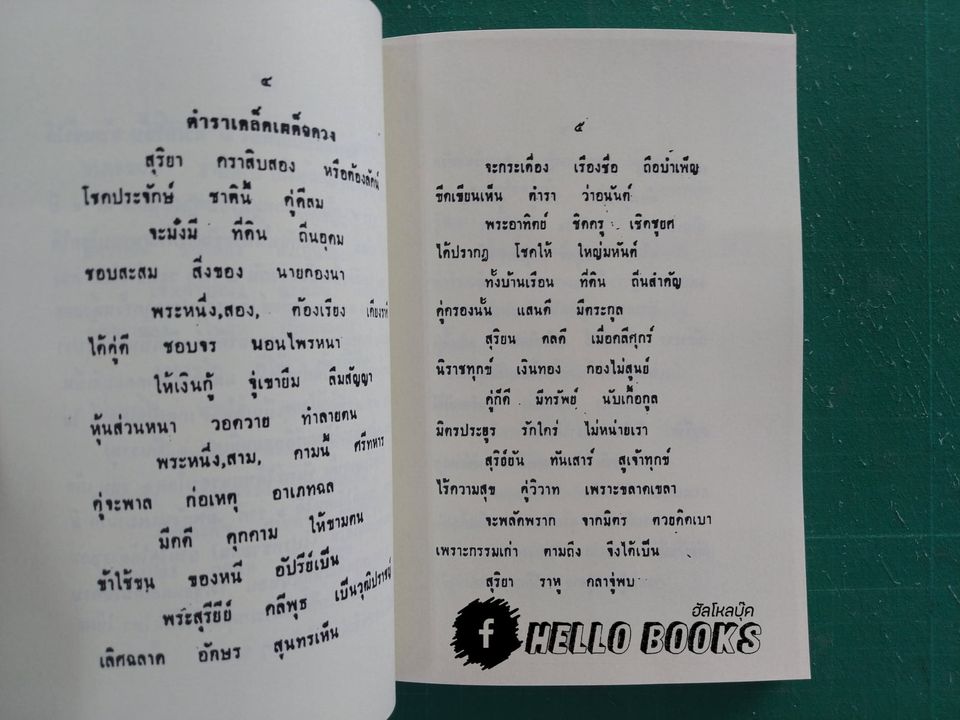 ๔
ตำราเคล็ดเผด็จดวง
สุริยา ดราสิบสอง หรือต้องลัคน์
โชคประจักษ์ ชาตินี้ คู่ดีสม
จะมั่งมี ที่ดิน ถิ่นอุดม
ชอบสะสม สิ่งของ นายกองนา
พระหนึ่ง,สอง, ต้องเรียง เคียง
ได้คู่ดี ชอบจร นอนไพรหนา
ให้เงินกู้ จู่เขายืม ลืมสัญญา
หุ้นส่วนหนา วอดวาย ทำลายตน
พระหนึ่ง,สาม, ตามนี้ ศรีทหาร
คู่จะพาล ก่อเหตุ อาเภทฉล
มีคดี คุกคาม ให้ขามตน
ข้าใช้ซน ของหนี อัปรีย์เป็น
พระสุรีย์ย์ คลีพุธ เป็นวุฒิปราชญ์
เลิศฉลาด อักษร สุนทรเห็น
๕
จะกระเดื่อง เรืองชื่อ ถือบำเพ็ญ
ขีดเขียนเห็น ตำรา ว่าอนันต์
พระอาทิตย์ ชิดครู เชิดชูยศ
ได้ปรากฎ โชคให้ ใหญ่มหันต์
ทั้งบ้านเรือน ที่ดิน ถิ่นสำคัญ
คู่ครองนั้น แสนดี มีตระกูล
สุริยน ดลดี เมื่อคลีศุกร์
นิราชทุกข์ เงินทอง กองไม่สูญ์
คู่ก็ดี มีทรัพย์ นับเกื้อกูล
มิตรประยูร รักใคร่ ไม่หน่ายเรา
สุริย์ยัน ทันเสาร์ สูเจ้าทุกข์
ไร้ความสุข คู่วิวาท เพราะขลาดเขลา
จะพลัดพราก จากมิตร ดวยคิดเบา
เพราะกรรมเก่า ตามถึง จึงได้เป็น
สุริยา ราหู คลาจู่พบ
ฮัลโหลบุ๊ค
HELLO BOOKS